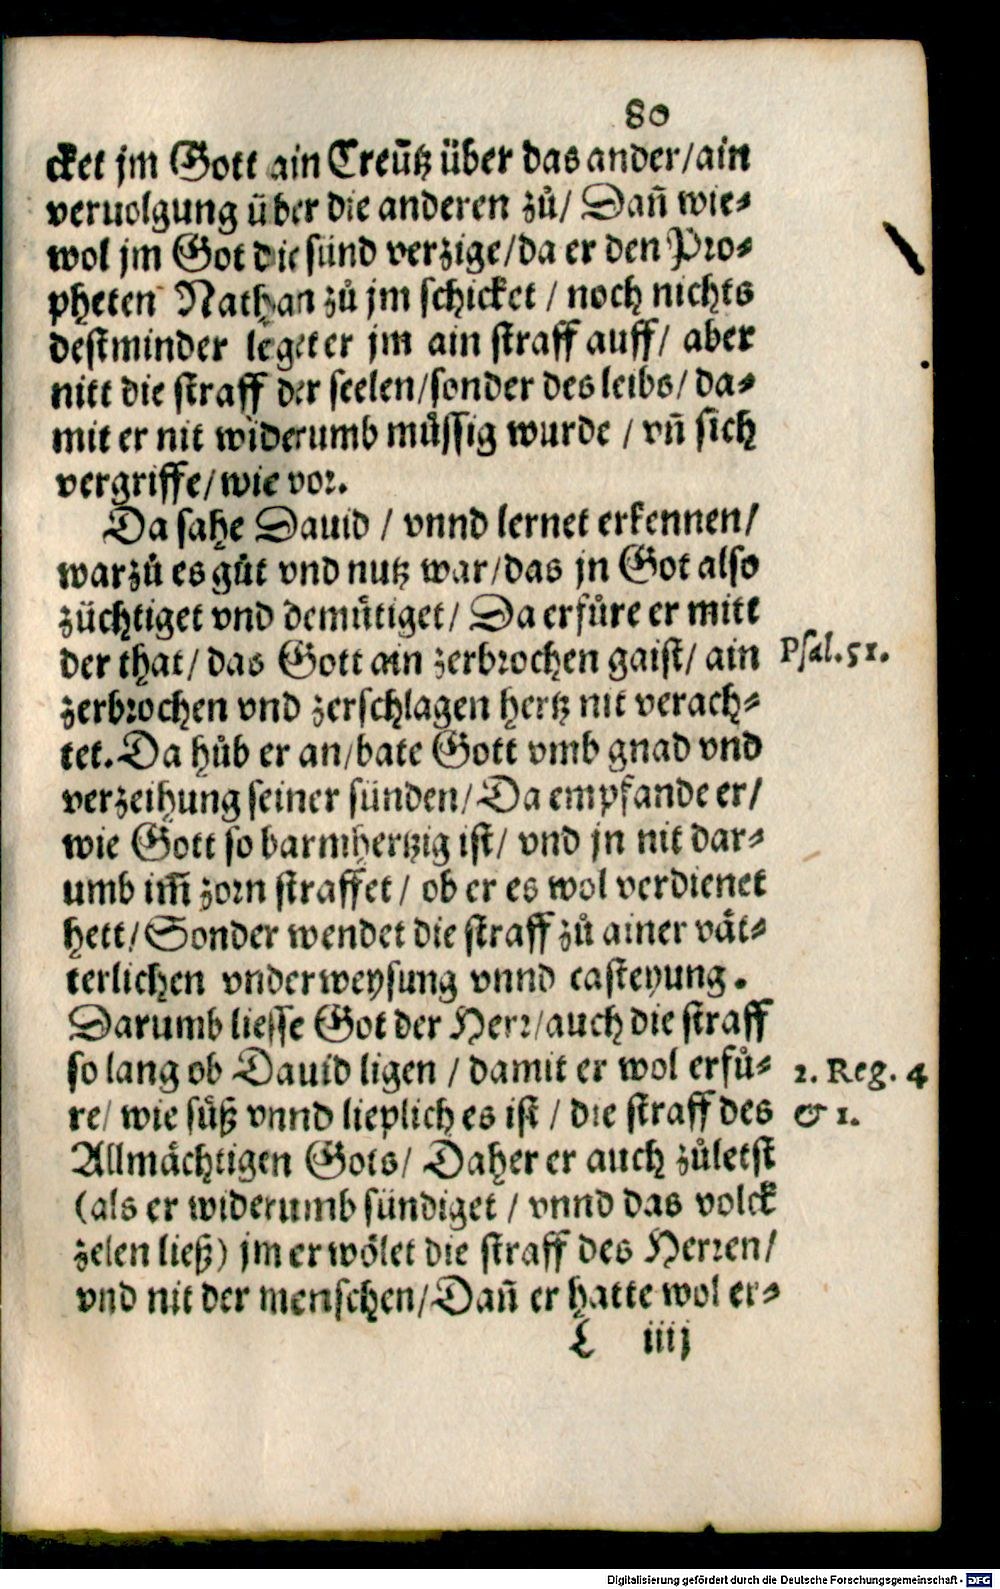 80
cket jm Gott ain Creűtz über das ander/ain
veruolgung über die anderen zů/ Dañ wie-
wol jm Got die sünd verzige/da er den Pro-
pheten Nathan zů jm schicket / noch nichts
destminder leget er jm ain straff auff/ aber
nitt die straff der seelen/sonder des leibs/ da-
mit er nit widerumb müssig wurde / vñ sich
vergriffe/wie vor.
Da sahe Dauid / vnnd lernet erkennen/
warzů es gůt vnd nutz war/das jn Got also
züchtiget vnd demütiget/ Da erfůre er mitt
der that/ das Gott ain zerbrochen gaist/ ain
Psal. 51.
zerbrochen vnd zerschlagen hertz nit verach-
tet. Da hůb er an/bate Gott vmb gnad vnd
verzeihung seiner sünden/ Da empfande er/
wie Gott so barmhertzig ist/ vnd jn nit dar-
umb im̃ zorn straffet / ob er es wol verdienet
hett/ Sonder wendet die straff zů ainer vät-
terlichen vnderweysung vnnd casteyung.
Darumb liesse Got der Herr/auch die straff
so lang ob Dauid ligen / damit er wol erfů-
2. Reg. 4
re/ wie süß vnnd lieplich es ist / die straff des
& 1.
Allmächtigen Gots/ Daher er auch zůletst
(als er widerumb sündiget / vnnd das volck
zelen ließ) jm erwölet die straff des Herren/
vnd nit der menschen/Dañ er hatte wol er-
L iiij
Digitalisierung gefördert durch die Deutsche Forschungsgemeinschaft - DFG